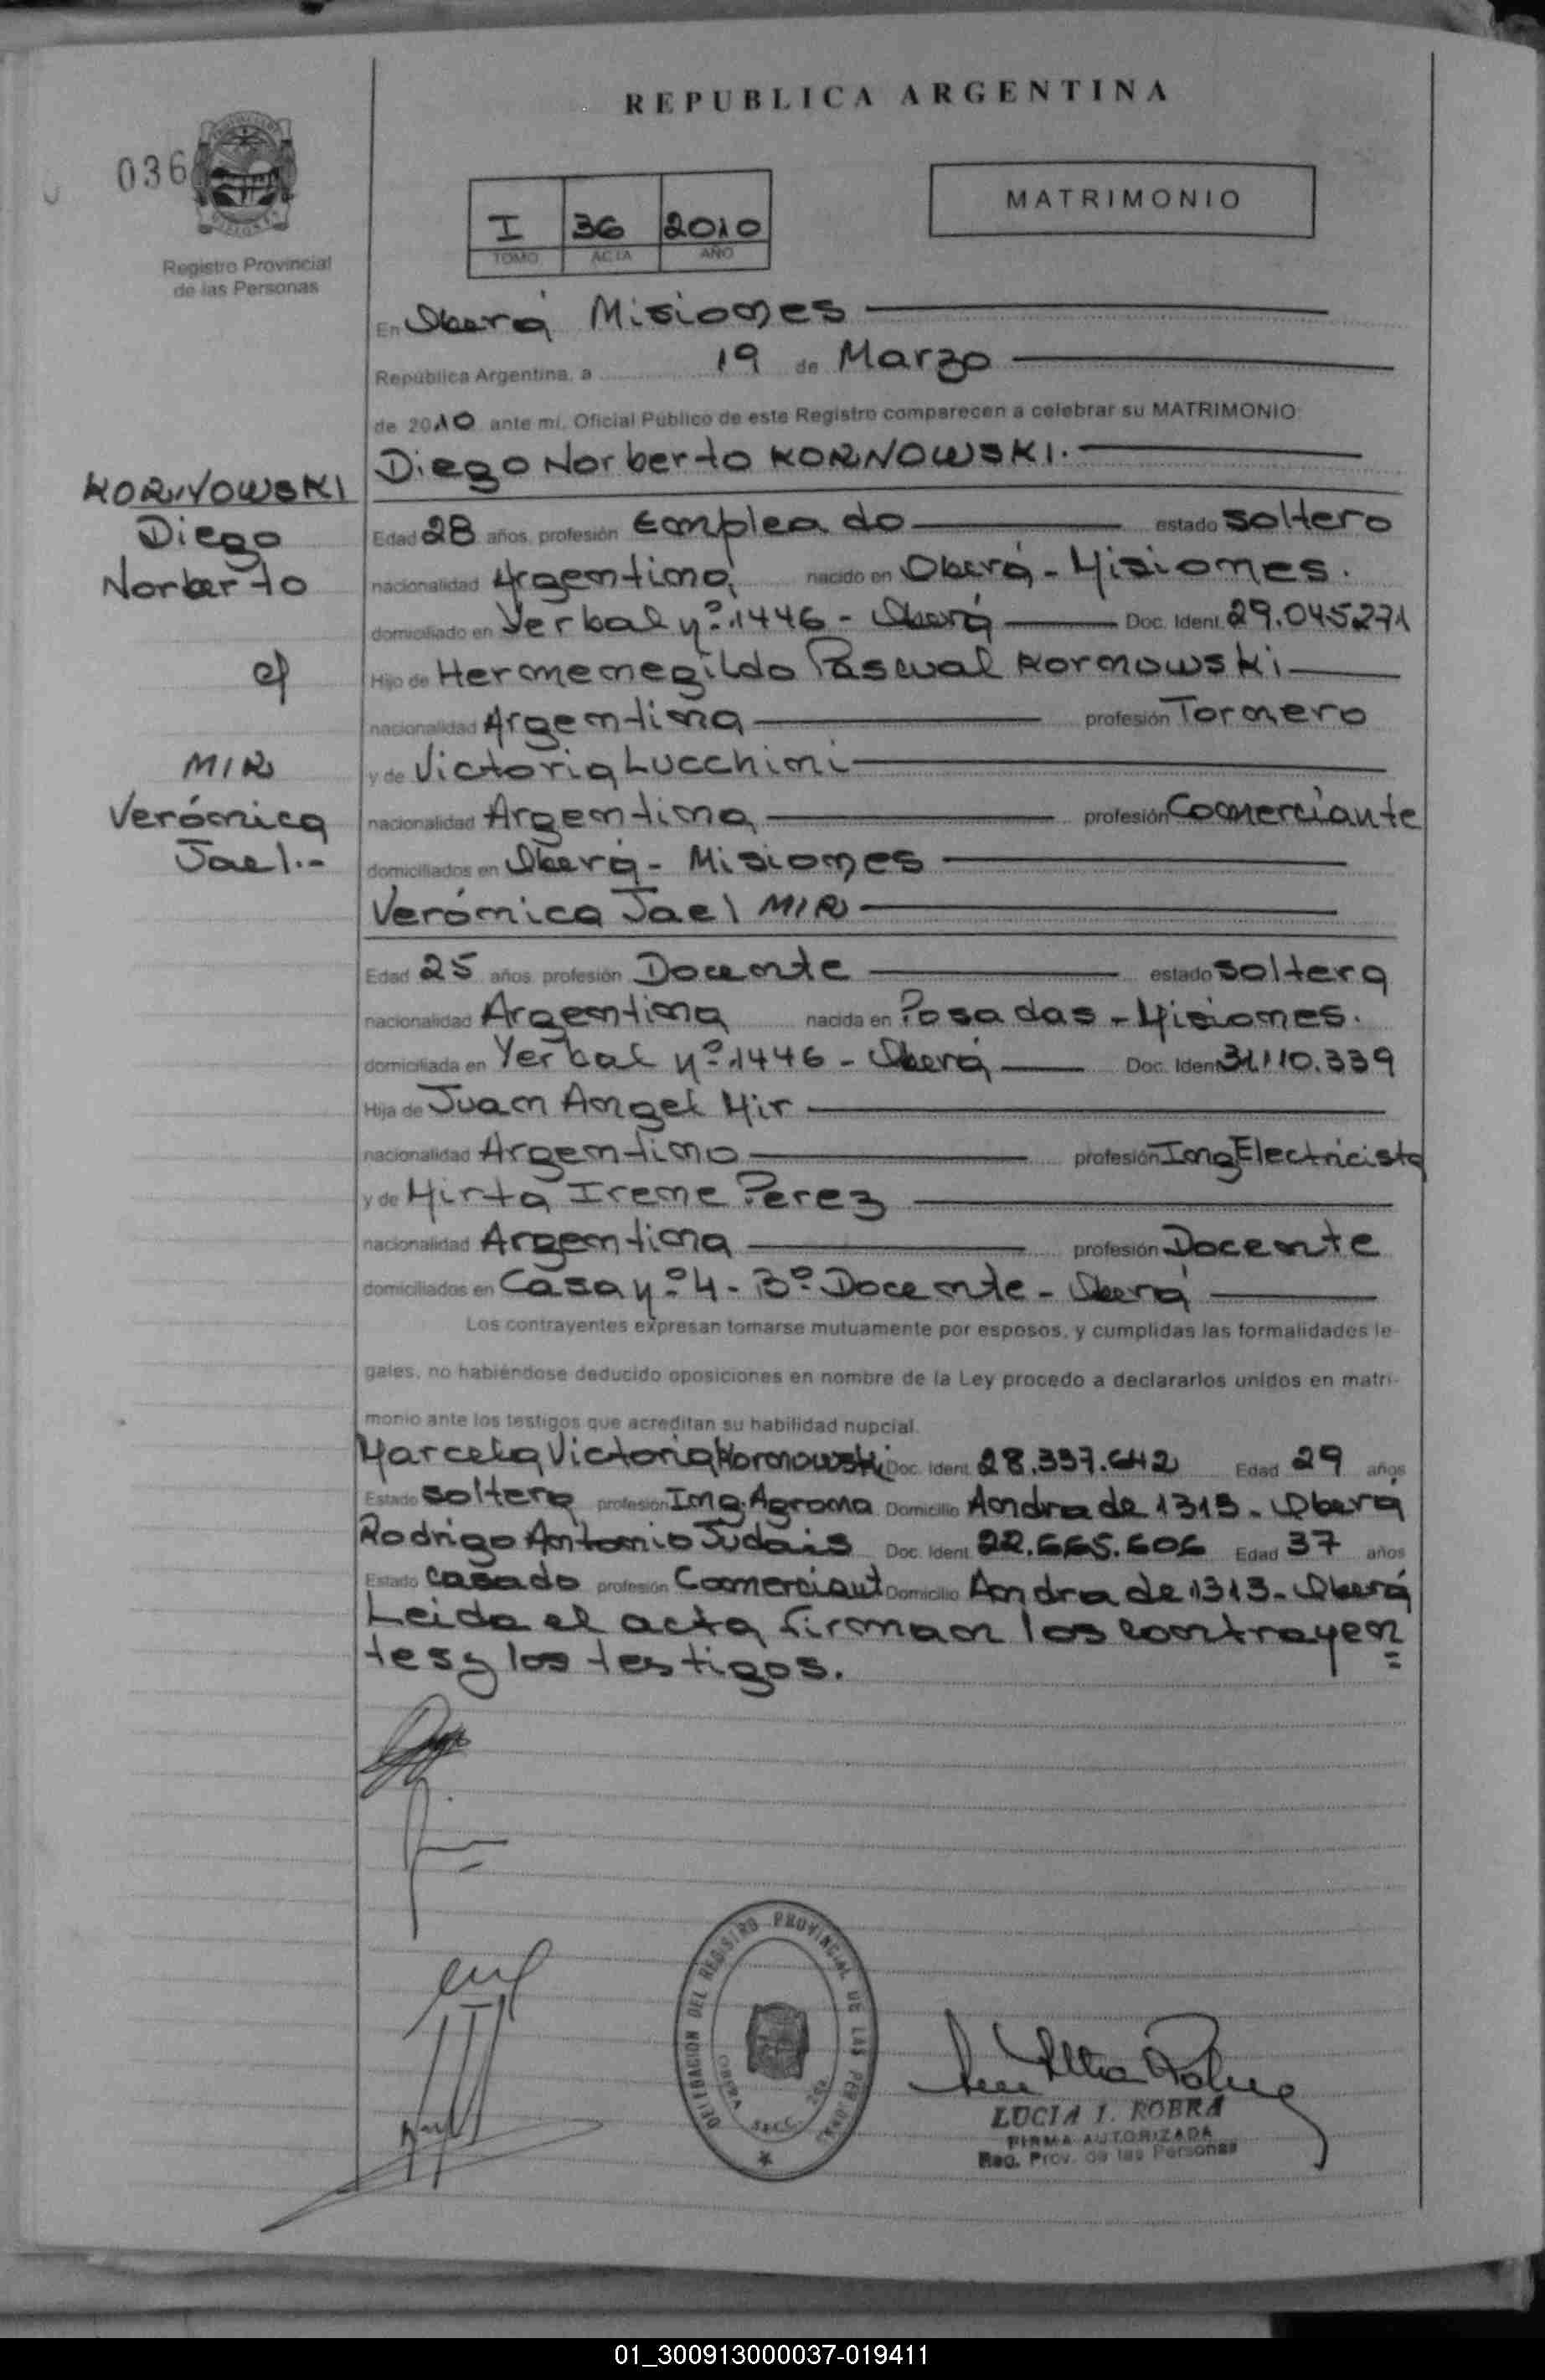 REPUBLICA ARGENTINA
036
Registro Provincial
de las Personas
I 36 2010
TOMO ACTA AÑO
MATRIMONIO
En Oberá Misiones
República Argentina, a 19 de Marzo
de 2010 ante mí, Oficial Público de este Registro comparecen a celebrar su MATRIMONIO:
Diego Norberto KORNOWSKI.
KORNOWSKI
Diego
Norberto
c/
MIR
Verónica
Jael.-
Edad 28 años, profesión Empleado estado soltero
nacionalidad Argentina nacido en Oberá - Misiones.
domiciliado en Yerbal Nº 1446 - Oberá Doc. Ident. 29.045.271
Hijo de Hermenegildo Pascual Kornowski
nacionalidad Argentina profesión Tornero
y de Victoria Lucchini
nacionalidad Argentina profesión Comerciante
domiciliados en Oberá - Misiones
Verónica Jael MIR
Edad 25 años, profesión Docente estado soltera
nacionalidad Argentina nacida en Posadas - Misiones.
domiciliada en Yerbal Nº 1446 - Oberá Doc. Ident. 31.110.339
Hija de Juan Angel Mir
nacionalidad Argentino profesión Ing Electricista
y de Mirta Irene Perez
nacionalidad Argentina profesión Docente
domiciliados en Casa Nº 4 - Bº Docente - Oberá
Los contrayentes expresan tomarse mutuamente por esposos, y cumplidas las formalidades le-
gales, no habiéndose deducido oposiciones en nombre de la Ley procedo a declararlos unidos en matri-
monio ante los testigos que acreditan su habilidad nupcial.
Marcela Victoria Kornowski Doc. Ident. 28.337.642 Edad 29 años
Estado soltera profesión Ing. Agroma Domicilio Andrade 1313 - Oberá
Rodrigo Antonio Judais Doc. Ident. 22.665.606 Edad 37 años
Estado casado profesión Comerciant Domicilio Andrade 1313 - Oberá
Leida el acta firman los contrayen
tes y los testigos.
DELEGACION DEL REGISTRO PROVINCIAL DE LAS PERSONAS
OBERA SECC. 2da
LUCIA I. ROBRA
FIRMA AUTORIZADA
Reg. Prov. de las Personas
01_300913000037-019411